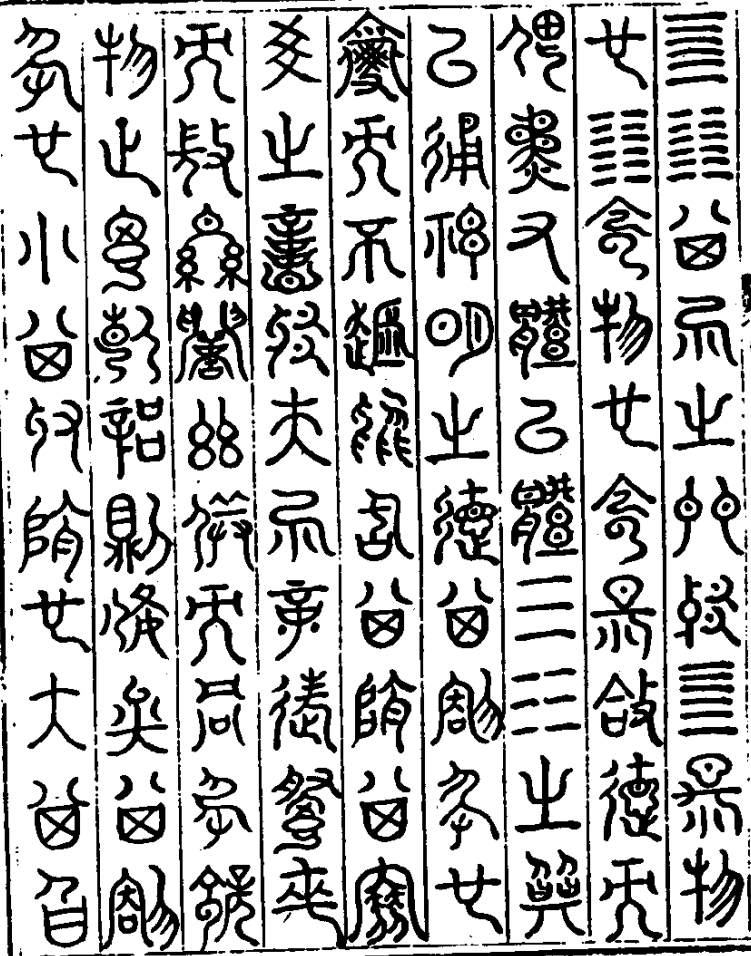 ䷀䷁其易之門邪䷀陽物
也䷁陰物也陰陽合德而
剛柔有體以體天地之撰
以通神明之德其稱名也
雜而不越於稽其類其衰
世之意邪夫易章往察來
而微顯闡幽開而當名辨
物正言斷辭則備矣其稱
名也小其取類也大其旨